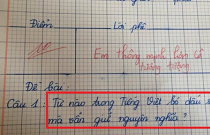 Điểm
Lời phê
Em thông minh lắm cô
không tưởng
Đề bài:
Câu 1: Từ nào trong Tiếng Việt bỏ dấu s
mà vẫn giữ nguyên nghĩa?